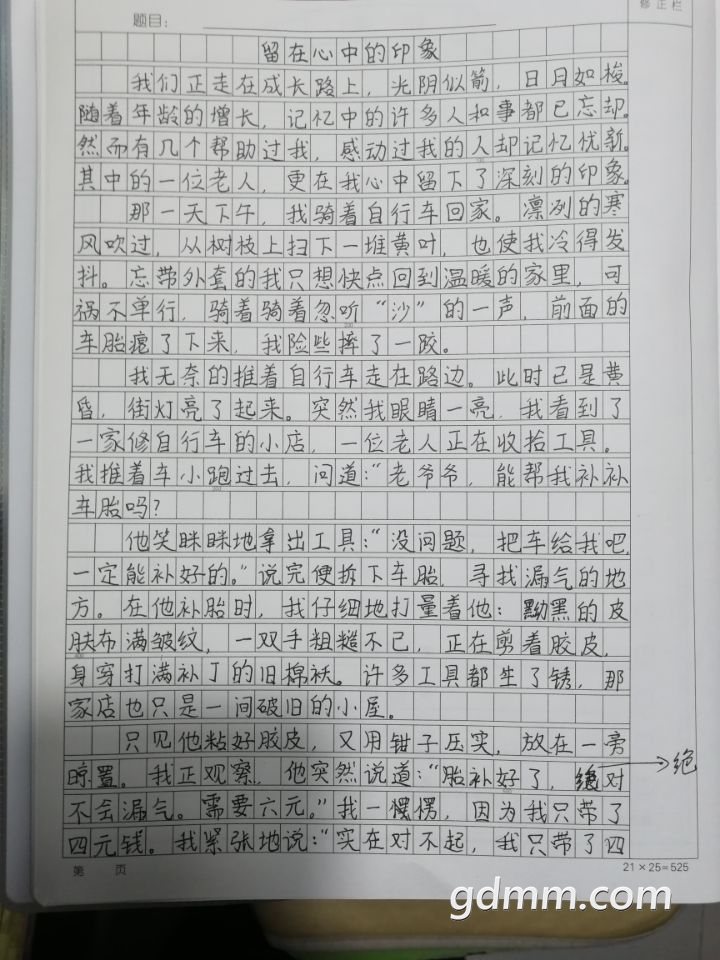 修正栏
题目：
留在心中的印象
我们正走在成长路上，光阴似箭，日月如梭。
随着年龄的增长，记忆中的许多人和事都已忘却。
然而有几个帮助过我，感动过我的人却记忆忧新。
其中的一位老人，更在我心中留下了深刻的印象。
那一天下午，我骑着自行车回家。凛冽的寒
风吹过，从树枝上扫下一堆黄叶，也使我冷得发
抖。忘带外套的我只想快点回到温暖的家里，可
祸不单行，骑着骑着忽听“沙”的一声，前面的
车胎瘪了下来，我险些摔了一跤。
我无奈的推着自行车走在路边。此时已是黄
昏，街灯亮了起来。突然我眼睛一亮，我看到了
一家修自行车的小店，一位老人正在收拾工具。
我推着车小跑过去，问道：“老爷爷，能帮我补补
车胎吗？
他笑眯眯地拿出工具：“没问题，把车给我吧，
一定能补好的。”说完便拆下车胎，寻找漏气的地
方。在他补胎时，我仔细地打量着他：黝黑的皮
肤布满皱纹，一双手粗糙不已，正在剪着胶皮，
身穿打满补丁的旧棉袄。许多工具都生了锈，那
家店也只是一间破旧的小屋。
只见他粘好胶皮，又用钳子压实，放在一旁
晾置。我正观察，他突然说道：“胎补好了，绝对
绝
不会漏气。需要六元。”我一愣愣，因为我只带了
四元钱。我紧张地说：“实在对不起，我只带了四
第 页
21×25=525
gdmm.com